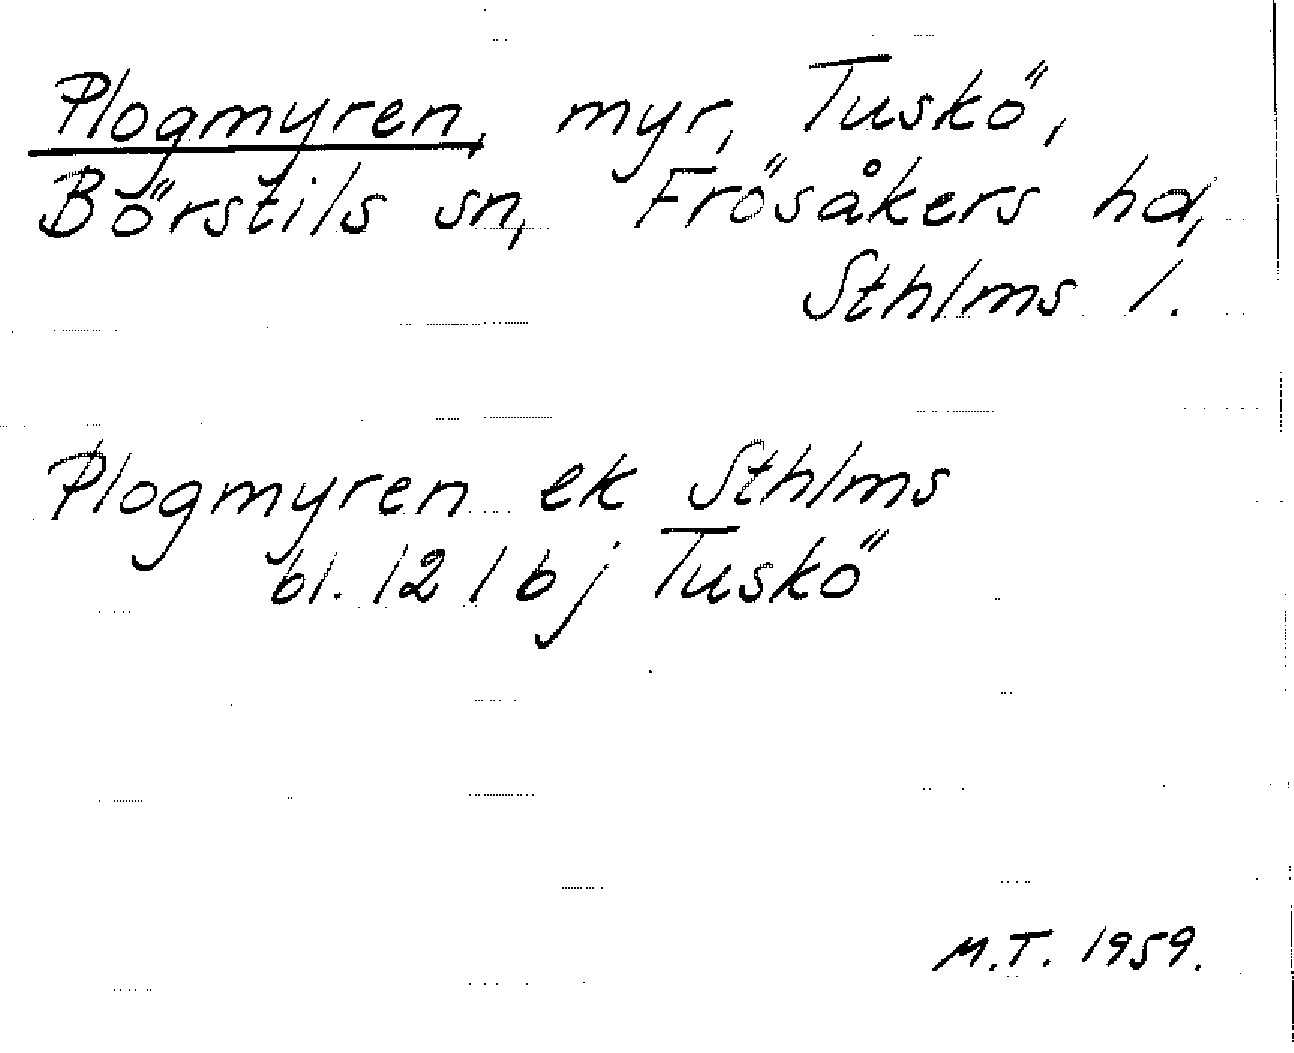 Plogmyren, myr, Tuskö,
Börstils sn, Frösåkers hd,
Sthlms l.
Plogmyren ek Sthlms
bl. 121 bj Tuskö
M.T. 1959.